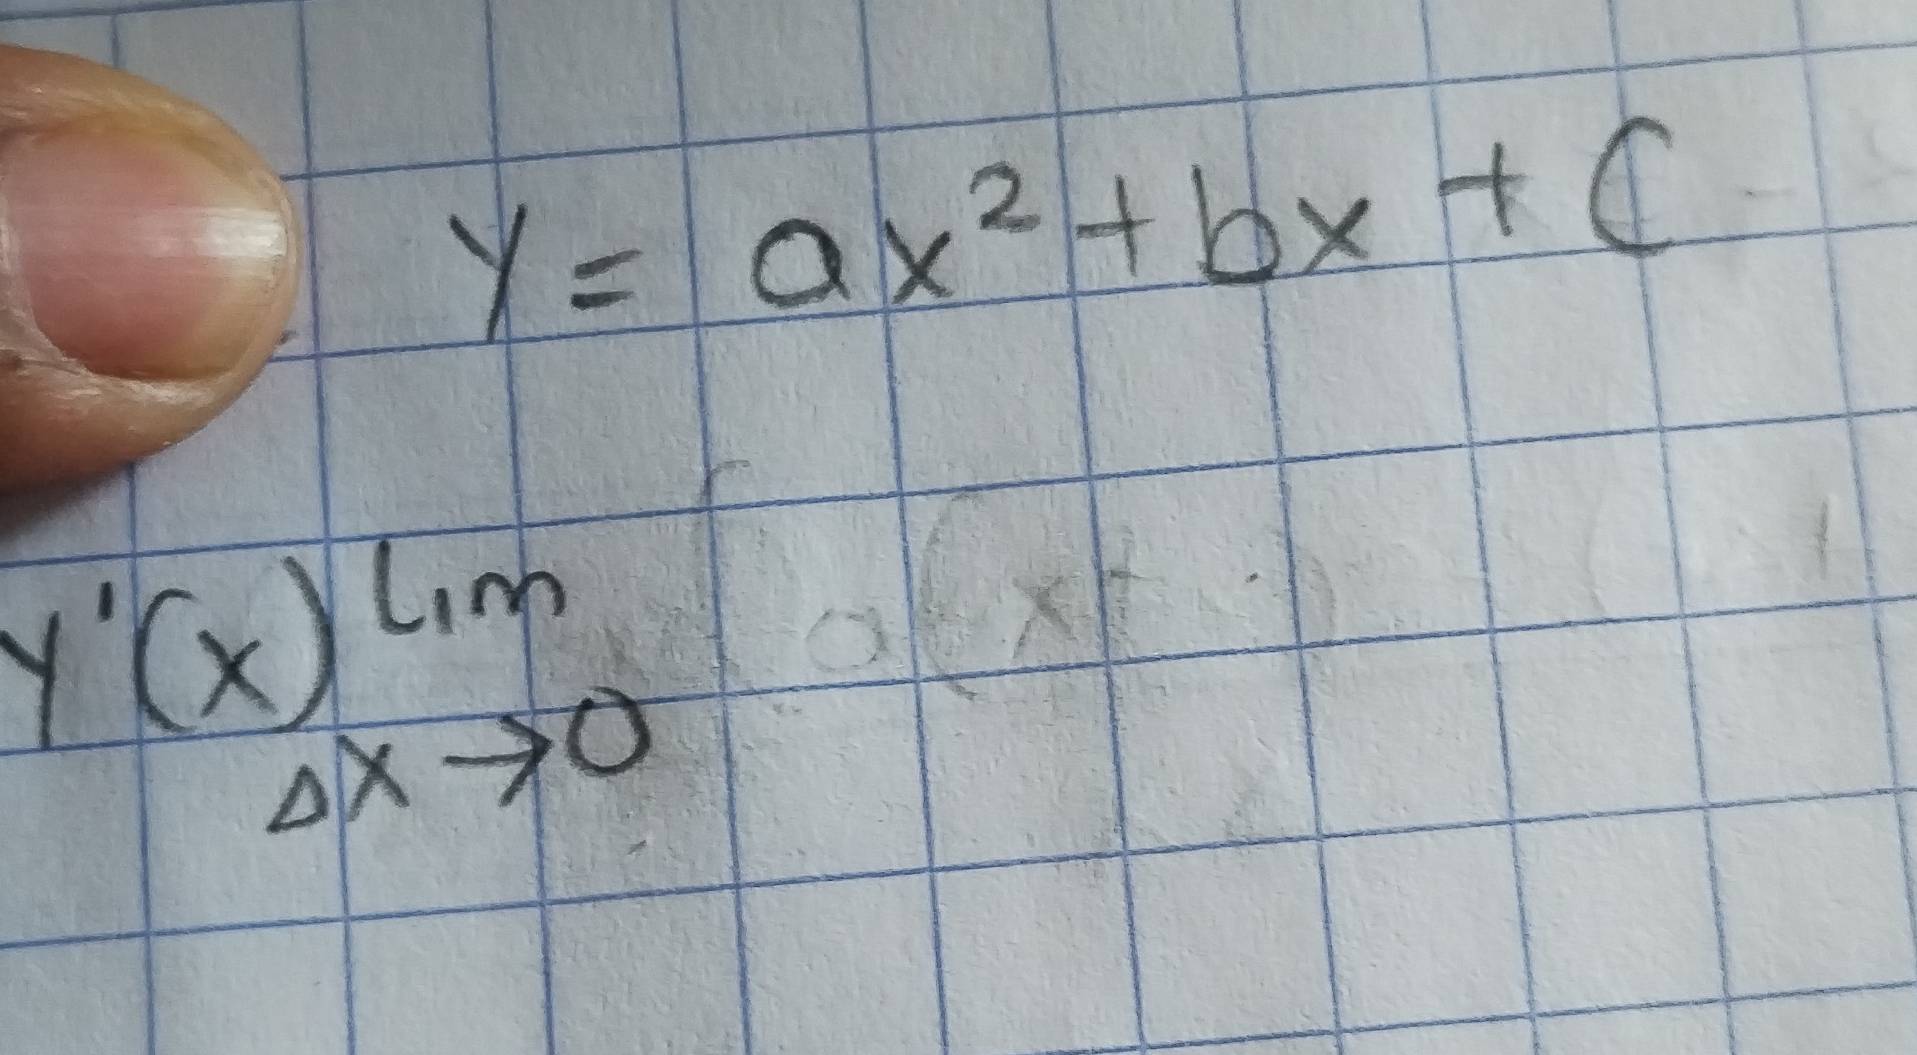 y = ax² + bx + c
y'(x) lim
Δx → 0